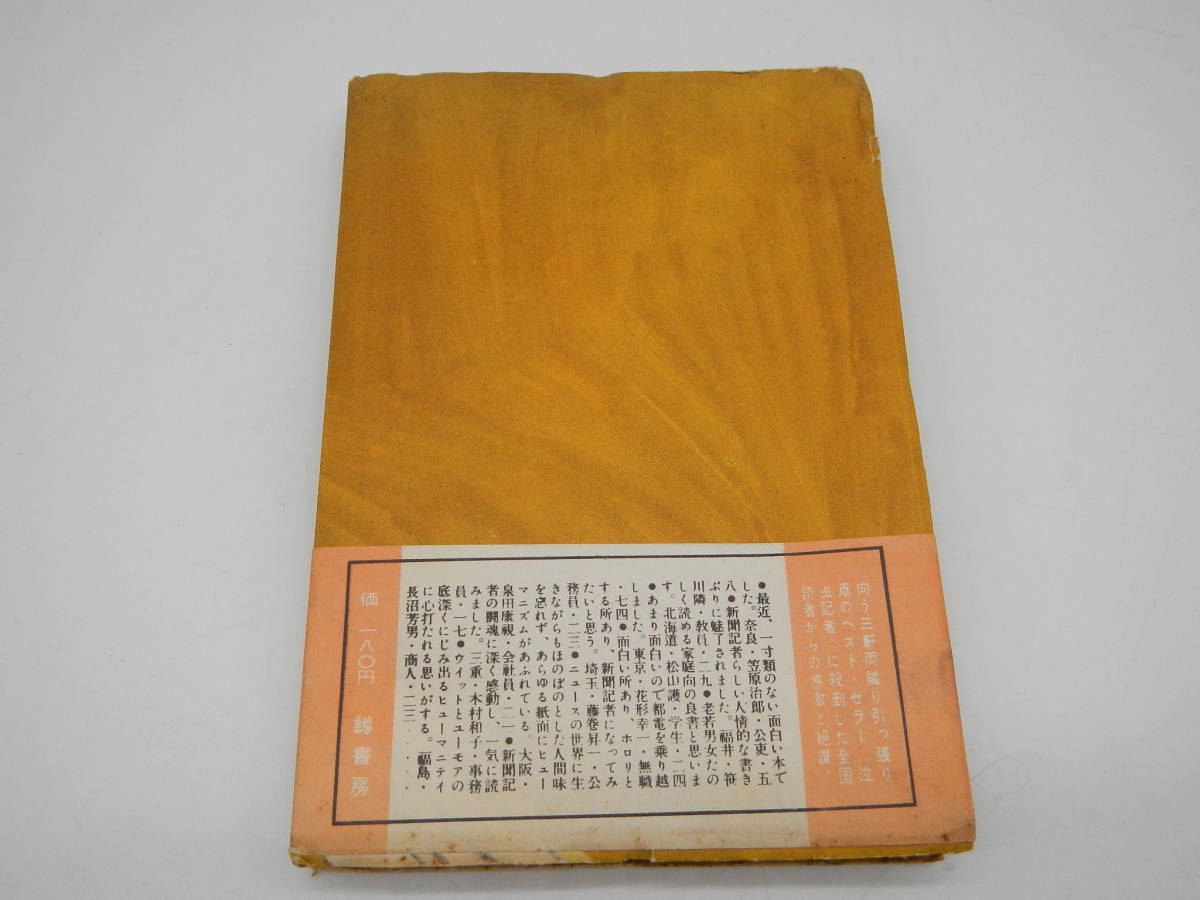 向う三軒両隣り引っ張り
凧のベスト・セラー 泣
虫記者 に殺到した全国
読者からの感激と絶讃！
●最近、一寸類のない面白い本で
した。奈良・笠原治郎・公吏・五
八●新聞記者らしい人情的な書き
ぶりに魅了されました。福井・笹
川隣・教員・二九●老若男女たの
しく読める家庭向の良書と思いま
す。北海道・松山護・学生・二四
●あまり面白いので都電を乗り越
しました。東京・花形幸一・無職
・七四●面白い所あり、ホロリと
する所あり、新聞記者になってみ
たいと思う。埼玉・藤巻昇一・公
務員・二三●ニュースの世界に生
きながらもほのぼのとした人間味
を忘れず、あらゆる紙面にヒュー
マニズムがあふれている。大阪・
泉田康視・会社員・二一●新聞記
者の闘魂に深く感動し、一気に読
みました。三重・木村和子・事務
員・一七●ウイットとユーモアの
底深くにじみ出るヒューマニテイ
に心打たれる思いがする。福島・
長沼芳男・商人・二三・・・・・
価 一八〇円 鱒書房